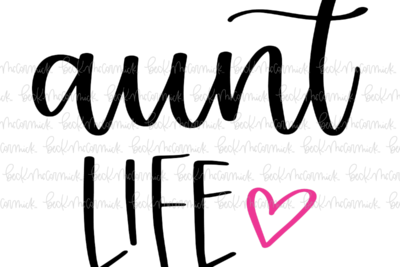 aunt
LIFE